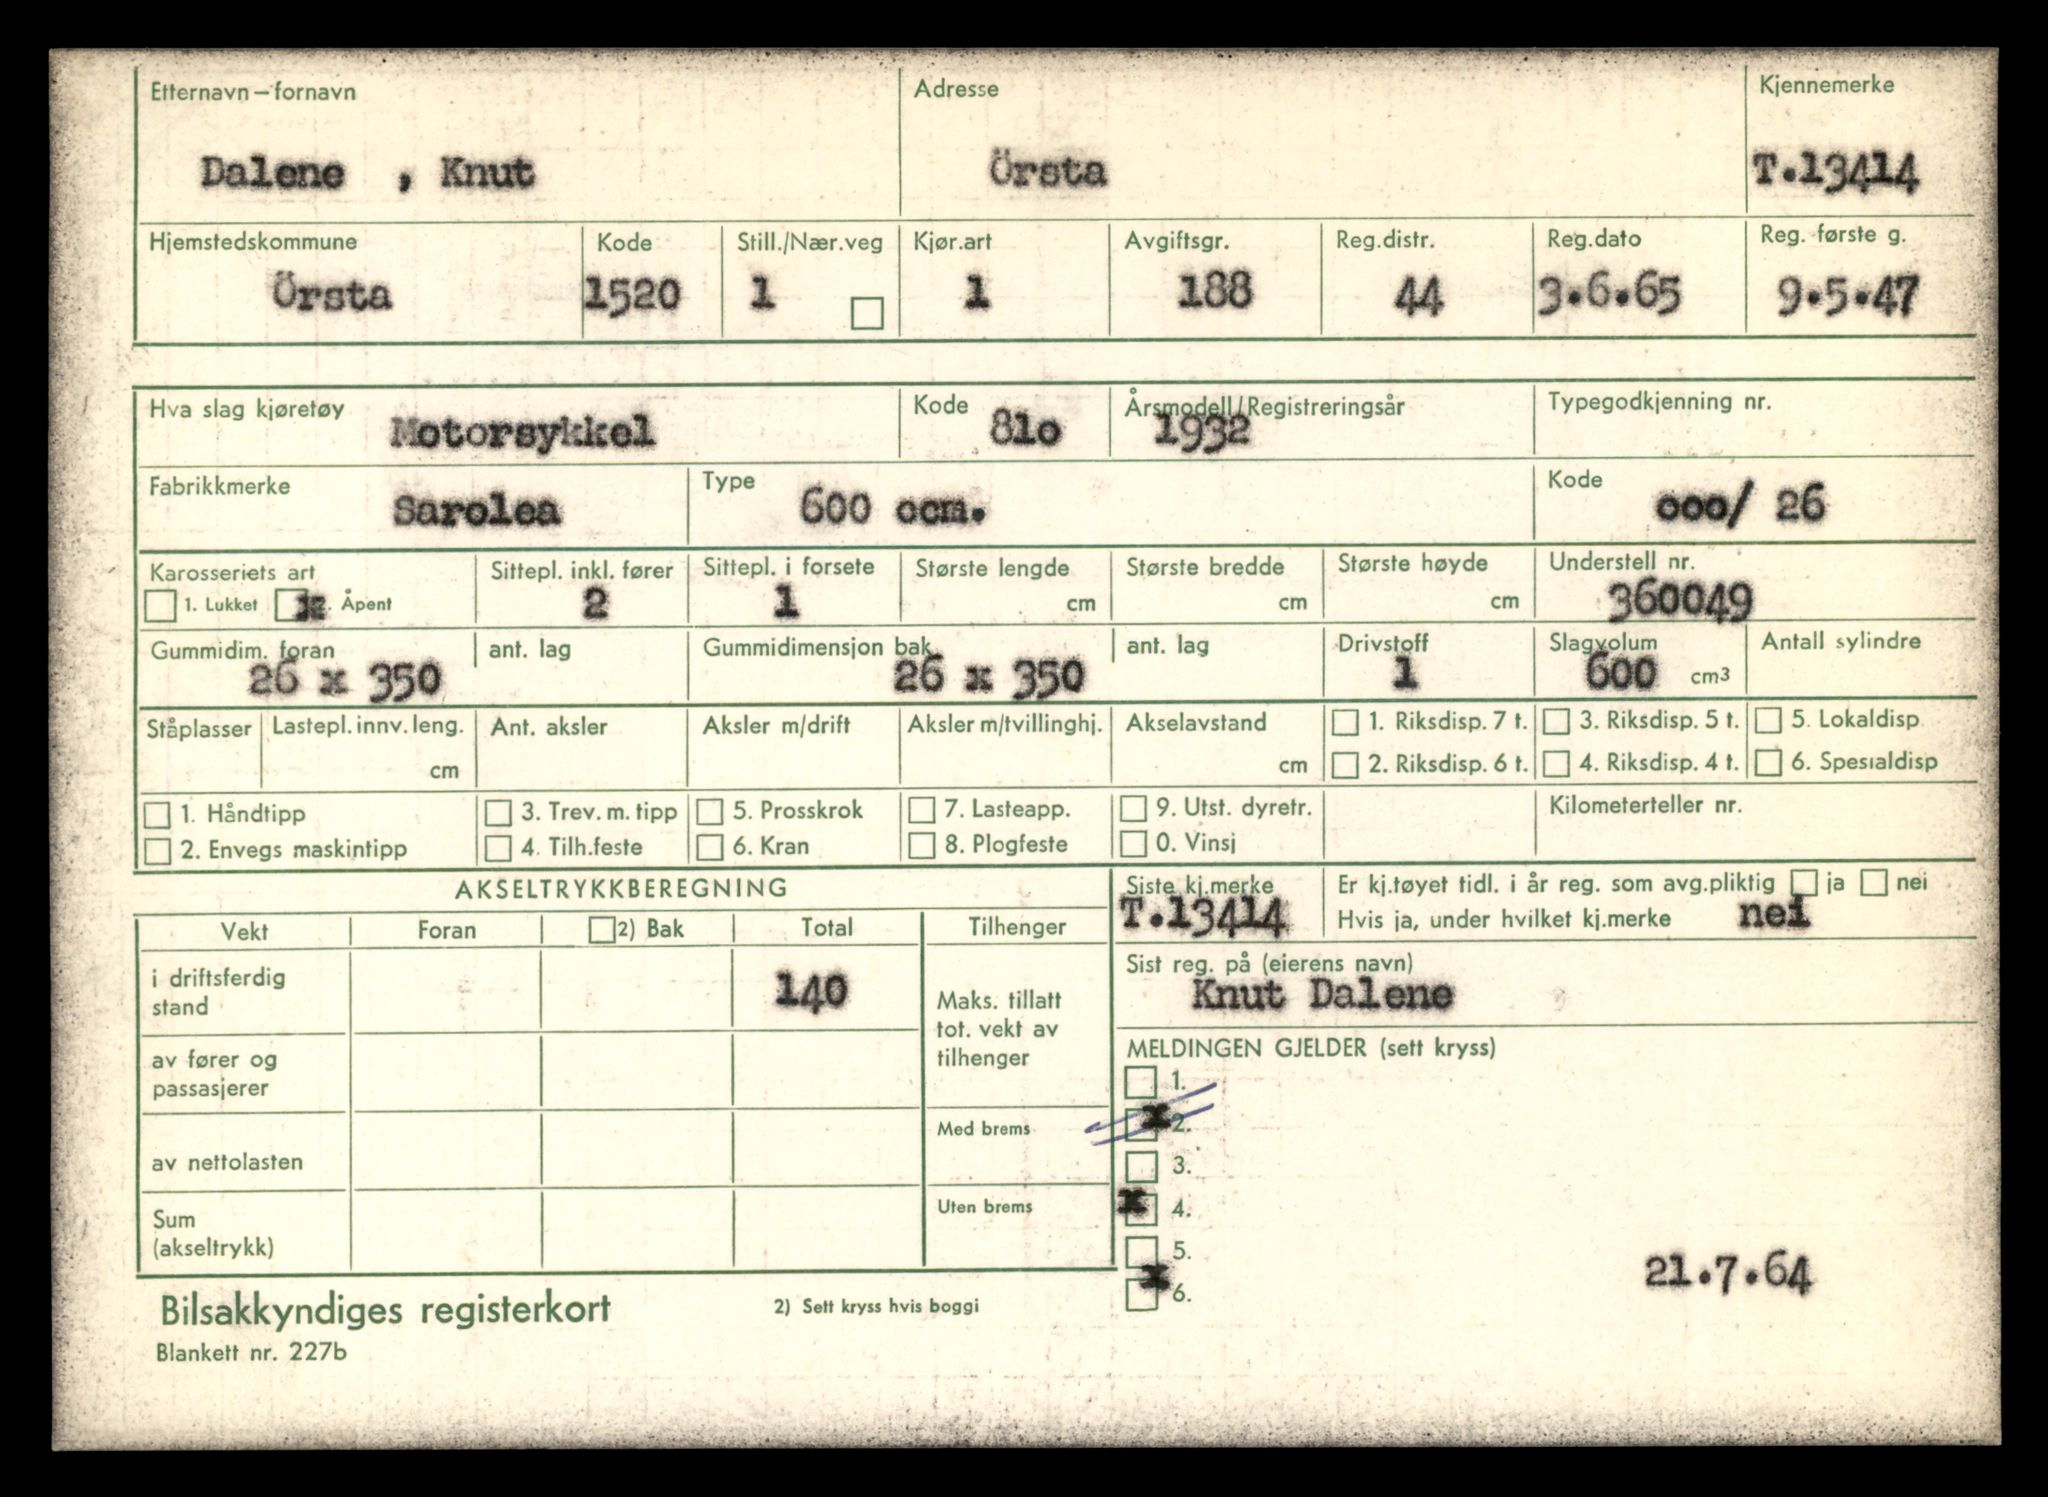 Etternavn – fornavn Adresse Kjennemerke
Dalene , Knut Örsta T.13414
Hjemstedskommune Kode Still./Nær.veg Kjør.art Avgiftsgr. Reg.distr. Reg.dato Reg. første g.
Örsta 1520 1 1 188 44 3.6.65 9.5.47
Hva slag kjøretøy Motorsykkel Kode 81o Årsmodell/Registreringsår 1932 Typegodkjenning nr.
Fabrikkmerke Sarolea Type 600 ccm. Kode ooo/ 26
Karosseriets art Sittepl. inkl. fører Sittepl. i forsete Største lengde Største bredde Største høyde Understell nr.
1. Lukket x 2. Åpent 2 1 cm cm cm 360049
Gummidim. foran ant. lag Gummidimensjon bak ant. lag Drivstoff Slagvolum Antall sylindre
26 x 350 26 x 350 1 600 cm3
Ståplasser Lastepl. innv. leng. Ant. aksler Aksler m/drift Aksler m/tvillinghj. Akselavstand 1. Riksdisp. 7 t. 3. Riksdisp. 5 t. 5. Lokaldisp
cm cm 2. Riksdisp. 6 t. 4. Riksdisp. 4 t. 6. Spesialdisp
1. Håndtipp 3. Trev. m. tipp 5. Prosskrok 7. Lasteapp. 9. Utst. dyretr. Kilometerteller nr.
2. Envegs maskintipp 4. Tilh.feste 6. Kran 8. Plogfeste 0. Vinsj
AKSELTRYKKBEREGNING Siste kj.merke Er kj.tøyet tidl. i år reg. som avg.pliktig ja nei
T.13414 Hvis ja, under hvilket kj.merke nei
Vekt Foran 2) Bak Total Tilhenger
Sist reg. på (eierens navn)
i driftsferdig
stand 140 Maks. tillatt
tot. vekt av
tilhenger
Knut Dalene
MELDINGEN GJELDER (sett kryss)
av fører og
passasjerer
1.
Med brems x 2.
av nettolasten 3.
Uten brems x 4.
Sum
(akseltrykk) 5.
x 6. 21.7.64
Bilsakkyndiges registerkort 2) Sett kryss hvis boggi
Blankett nr. 227b